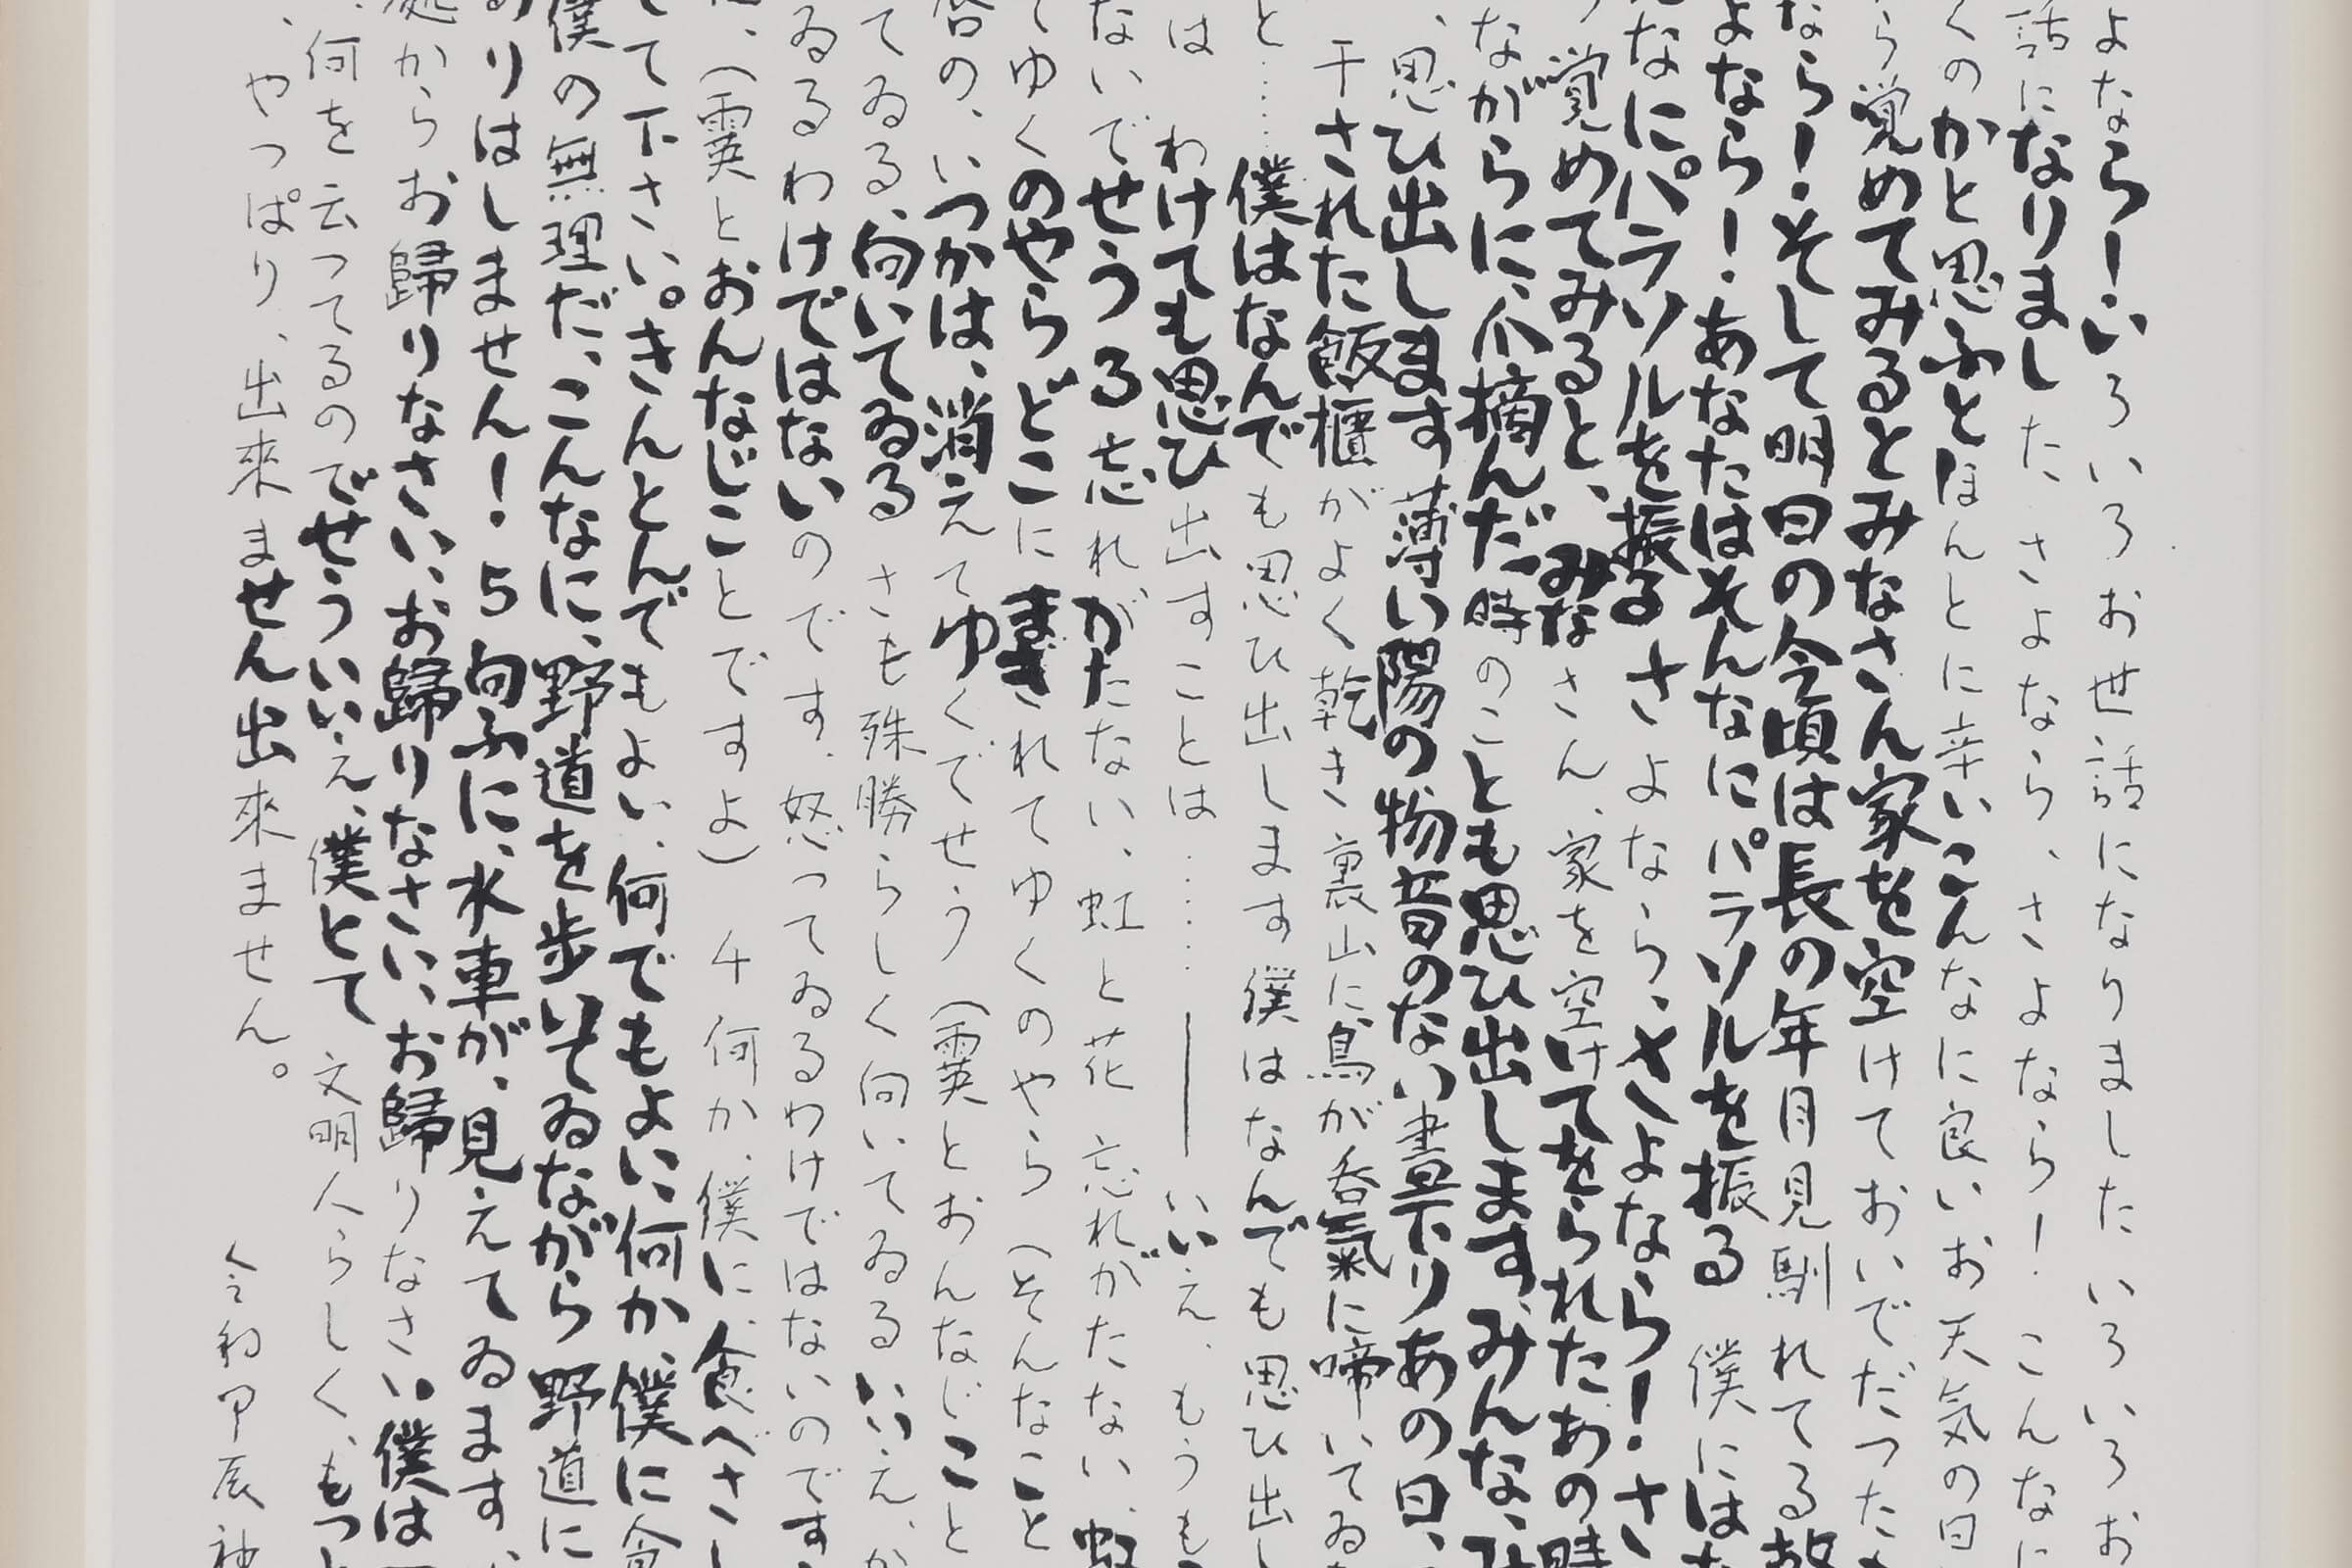 よなら！いろいろお世話になりましたいろいろお
話になりました さよなら、さよなら！ こんなに
くのかと思ふとほんとに辛いこんなに良いお天気の日
ら覚めてみるとみなさん家を空けておいでだつた
なら！そして明日の今頃は長の年月見馴れてる
よなら！あなたはそんなにパラソルを振る 僕には
なにパラソルを振る さよなら、さよなら！さ
覚めてみると、みなさん、家を空けてをられたあの時
ながらに、爪摘んだ時のことも思ひ出します、みんな、み
、思ひ出します 薄い陽の物音のない昼下りあの日、
干された飯櫃がよく乾き 裏山に烏が呑氣に啼いてゐ
と……僕はなんでも思ひ出します僕はなんでも思ひ出し
は わけても思ひ出すことは……――いいえ、もうも
ないでせうろ忘れがたない、虹と花 忘れがたない、虹
てゆくのやらどこにまぎれてゆくのやら（そんなこと
沓の、いつかは、消えてゆくでせう（霙とおんなじこと
てゐる、向いてゐる さも殊勝らしく向いてゐる いいえ、か
ゐるわけではないのです、怒つてゐるわけではないのです
、（霙とおんなじことですよ） 4 何か、僕に、食べさし
して下さい。きんとんでもよい、何でもよい、何か、僕に食
僕の無理だ、こんなに、野道を歩いてゐながら 野道に
りはしません！5 向ふに、水車が、見えてゐます、
処からお歸りなさい、お歸りなさい、お歸りなさい 僕は
、何を云つてるのでせう いいえ、僕とて 文明人らしく、もつ
、やつぱり、出來ません出來ません。
令和甲辰